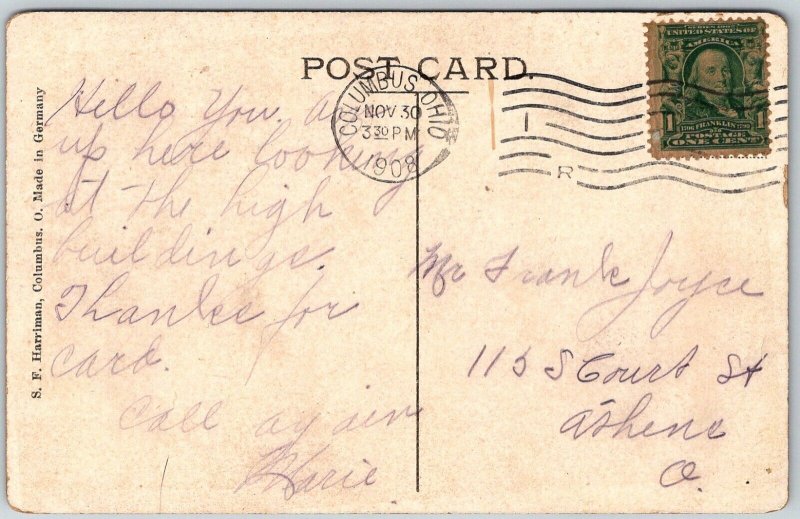 POST CARD.
COLUMBUS, OHIO
NOV 30
3 30 PM
1908
1
R
SERIES 1902
UNITED STATES OF
AMERICA
1706 FRANKLIN 1790
1 POSTAGE 1
ONE CENT
S. F. Harriman, Columbus, O. Made in Germany
Hello You. am
up here looking
at the high
buildings.
Thanks for
card.
Call again
Marie
Mr Frank Joyce
115 S Court St
Athens
O.